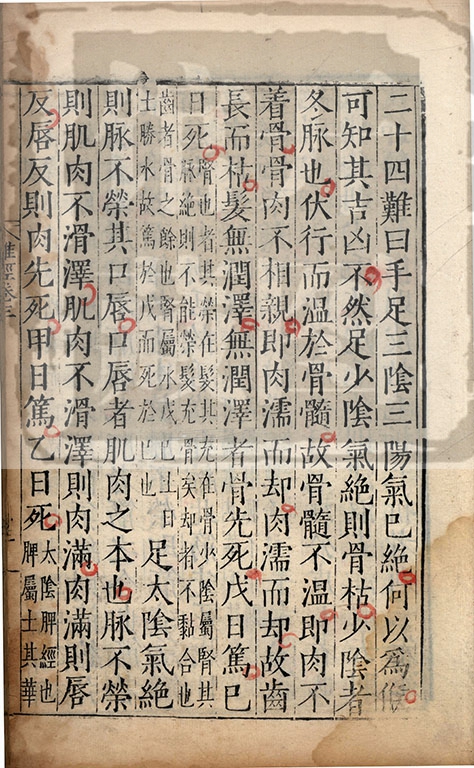 二十四難曰手足三陰三陽氣已絶何以爲候
可知其吉凶不然足少陰氣絶則骨枯少陰者
冬脉也伏行而溫於骨髓故骨髓不溫即肉不
着骨骨肉不相親即肉濡而却肉濡而却故齒
長而枯髮無潤澤無潤澤者骨先死戊日篤己
日死腎也者其榮在髮其充在骨少陰屬腎其
脉絶則不能榮髮充骨矣却者不黏合也
齒者骨之餘也腎屬水戊己土日
土勝水故篤於戊而死於己也
足太陰氣絶
則脉不榮其口唇口唇者肌肉之本也脉不榮
則肌肉不滑澤肌肉不滑澤則肉滿肉滿則唇
反唇反則肉先死甲日篤乙日死太陰脾經也
脾屬土其華
難經卷三